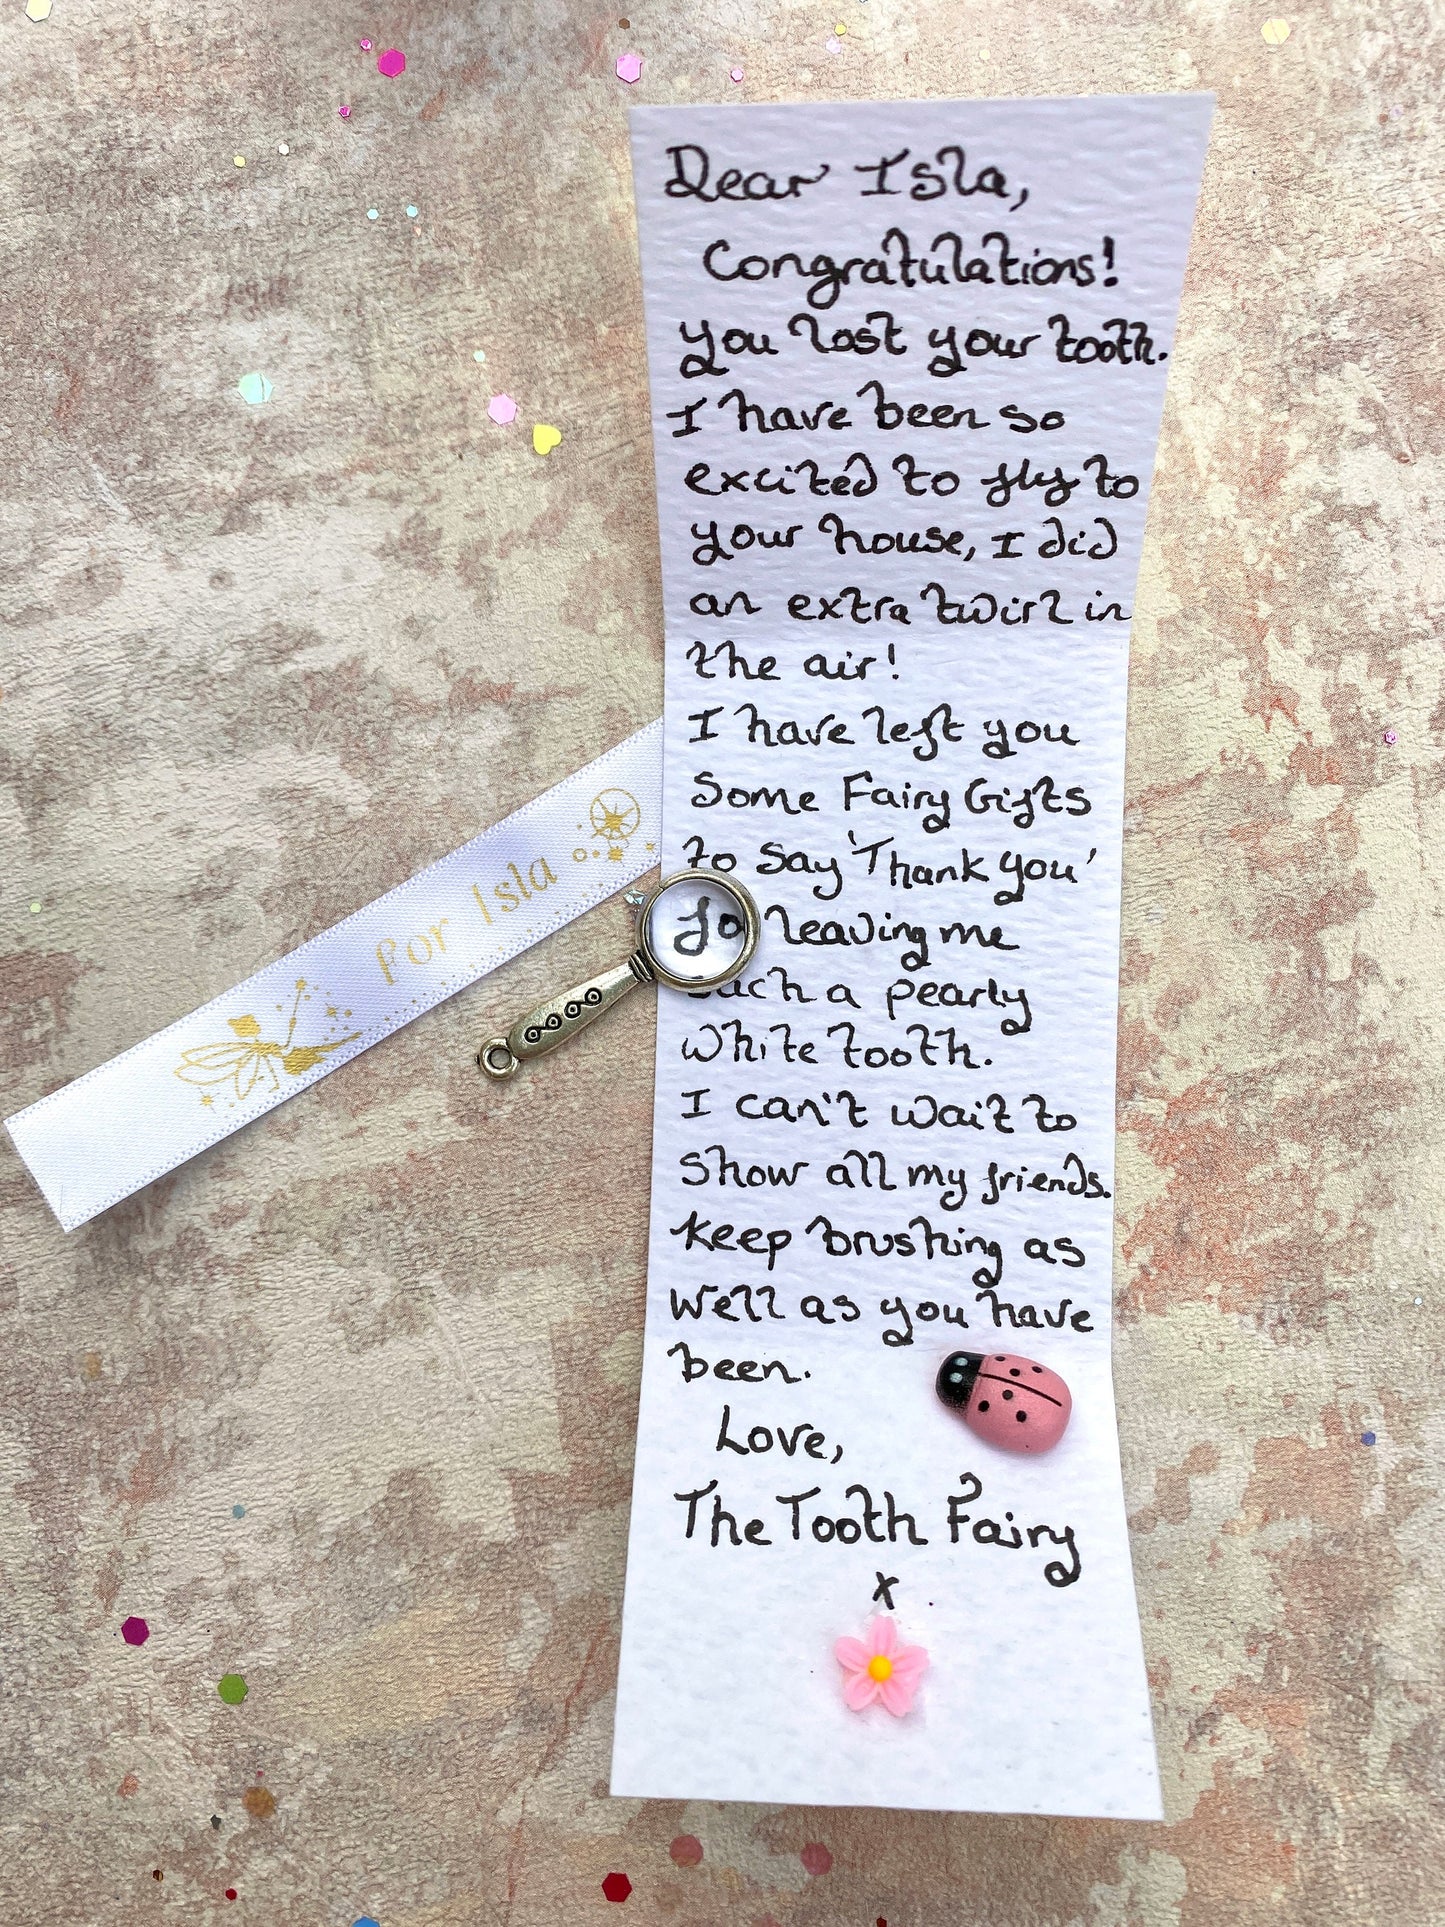 Dear Isla,
Congratulations!
you lost your tooth.
I have been so
excited to fly to
your house, I did
an extra twirl in
the air!
I have left you
Some Fairy Gifts
to say 'Thank you'
fo leaving me
such a pearly
white tooth.
I can't wait to
show all my friends.
keep brushing as
well as you have
been.
Love,
The Tooth Fairy
x
For Isla